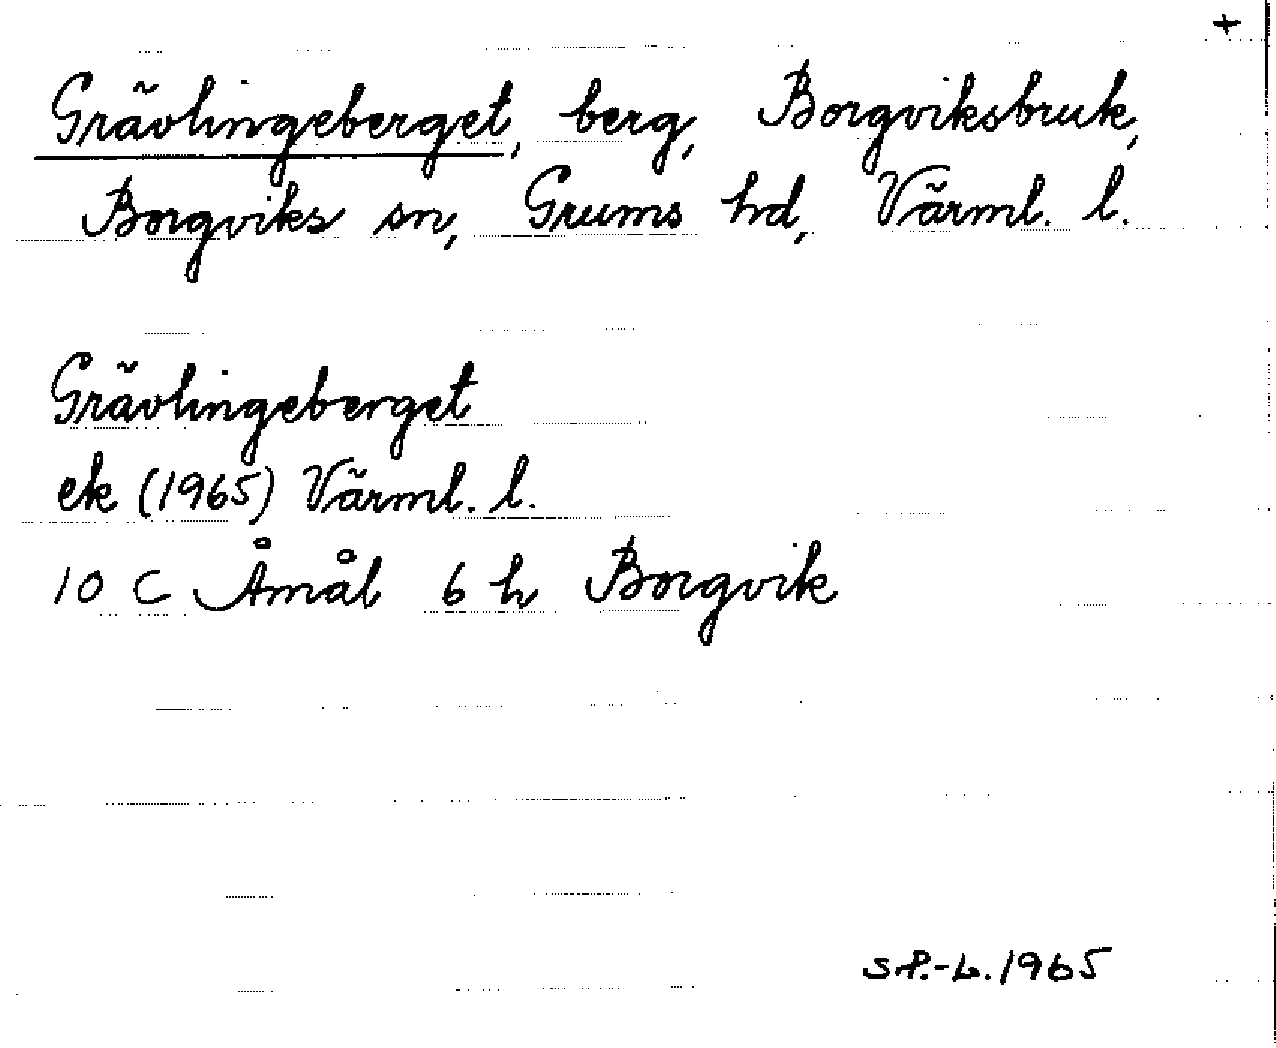 +
Grävlingeberget, berg, Borgviksbruk,
Borgviks sn, Grums hd, Värml. l.
Grävlingeberget
ek (1965) Värml. l.
10 C Åmål 6 h Borgvik
S.P.-L. 1965